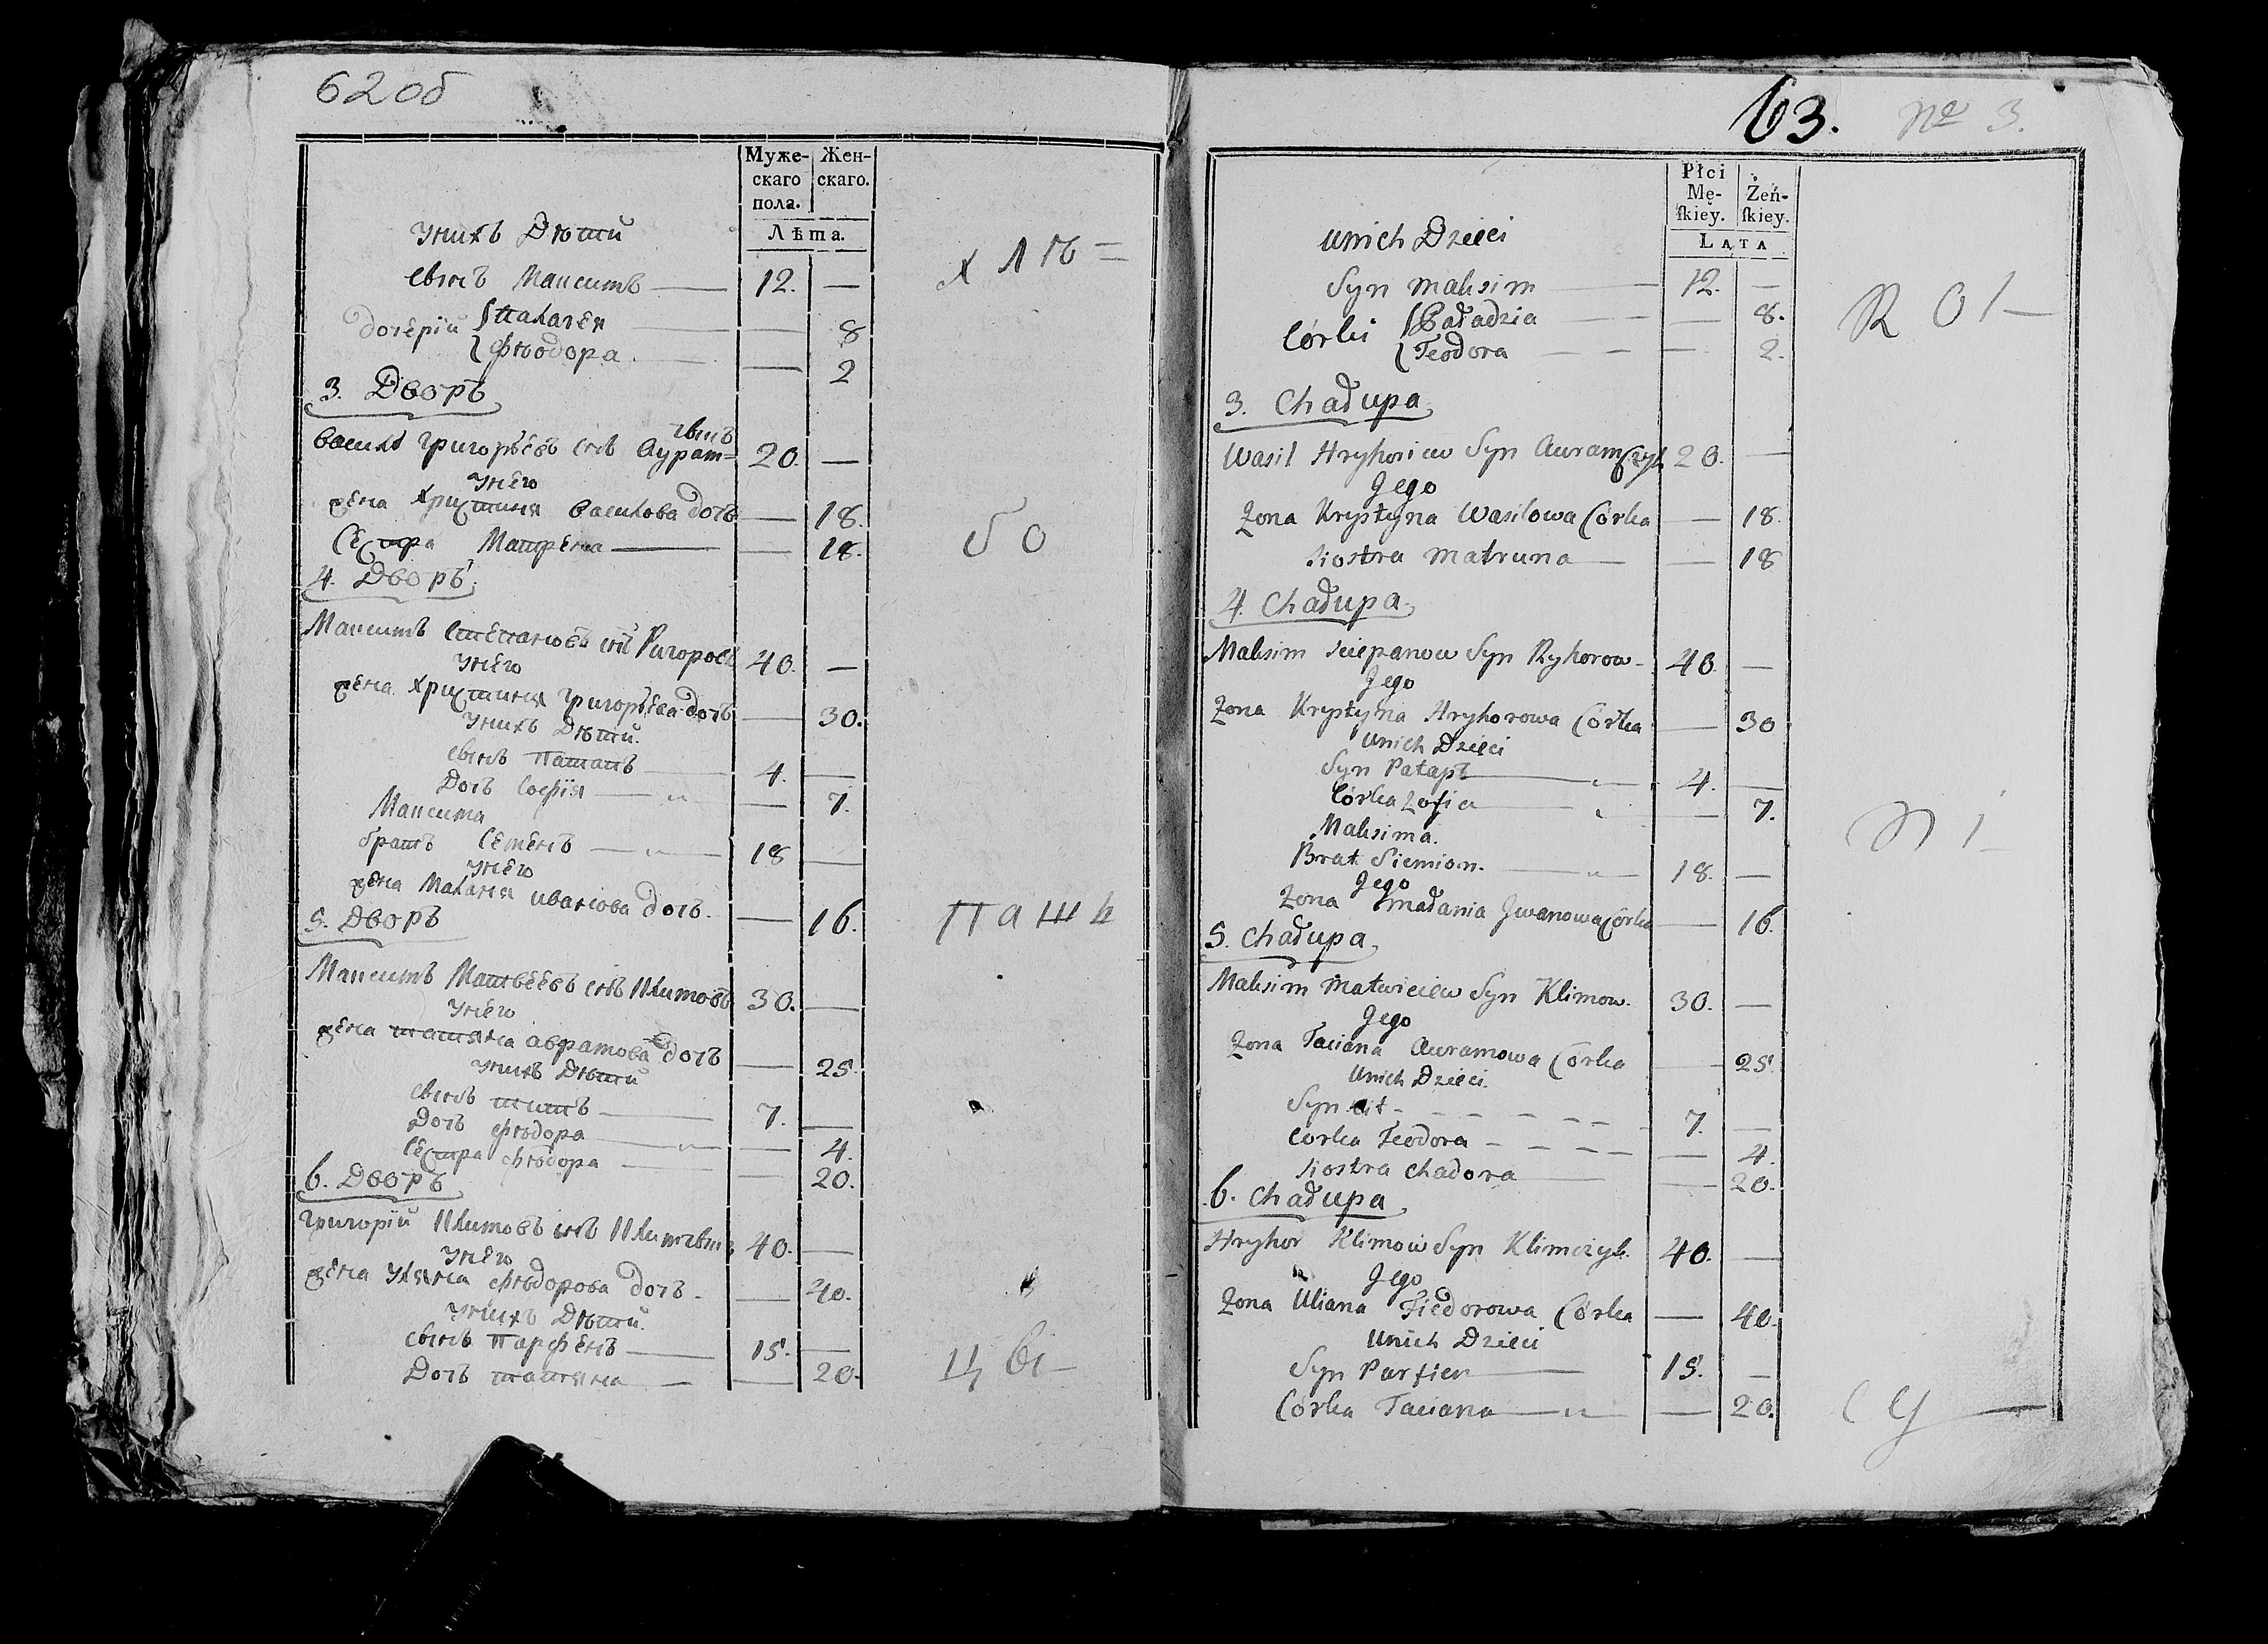 62 об
Муже-
скаго
пола.
Жен-
скаго.
Лѣта.
Унихъ Дѣтей
сынъ Максимъ 12. —
дочерїи — 8
Фѣодора — 2
3. Дворъ
Василь Григорьевъ снъ Аурам=чикъ 20. —
Унего
жена Христиня Василова дочь — 18.
Сестра Матрена — 18.
4. Дворъ
Максимъ Степановъ снъ Ригоровъ 40. —
Унего
жена Христиня Григорьева дочь — 30.
Унихъ Дѣтей.
сынъ Патапъ 4. —
Дочь Софїя — 7.
Максима
братъ Семенъ 18 —
Унего
жена Маланя Иванова дочь. — 16.
5. Дворъ
Максимъ Матвеевъ снъ Климовъ 30. —
Унего
жена татяна аврамова дочь — 25.
Унихъ Дѣтей
сынъ титъ 7. —
Дочь Фѣдора — 4.
Сестра Фѣдора — 20.
6. Дворъ
Григорїй Климовъ снъ Климчикъ 40. —
Унего
жена Уляна Фѣдорова дочь. — 40.
Унихъ Дѣтей.
сынъ Парфенъ 15. —
Дочь татяна — 20.
хлѣ=
бо
паж
цы
63. № 3.
Płci
Mę-
ſkiey.
Żeń-
ſkiey.
LATA
Unich Dzieci
Syn Maksim 12. —
Córki { Paładzia — 8.
{ Teodora — 2.
3. Chałupa
Wasil Hryhoriew Syn Auramczyk 20. —
Jego
Zona Krystyna Wasilowa Córka — 18.
Siostra Matruna — 18
4. Chałupa
Maksim Sciepanow Syn Ryhorow 40. —
Jego
Zona Krystyna Hryhorowa Córka — 30
Unich Dzieci
Syn Patap 4. —
Córka Zofia — 7.
Maksima.
Brat Siemion. 18. —
Jego
Zona Małania Jwanowa Córka — 16.
5. Chałupa
Maksim Matwieiew Syn Klimow. 30. —
Jego
Zona Taciana Auramowa Córka — 25.
Unich Dzieci.
Syn tit 7. —
Corka Teodora — 4.
Siostra Chadora — 20.
6. Chałupa
Hryhor Klimow Syn Klimczyk. 40. —
Jego
Zona Uliana Fiedorowa Córka — 40.
Unich Dzieci
Syn Parfien 15. —
Córka Taciana — 20.
R O l—
n i—
c y—